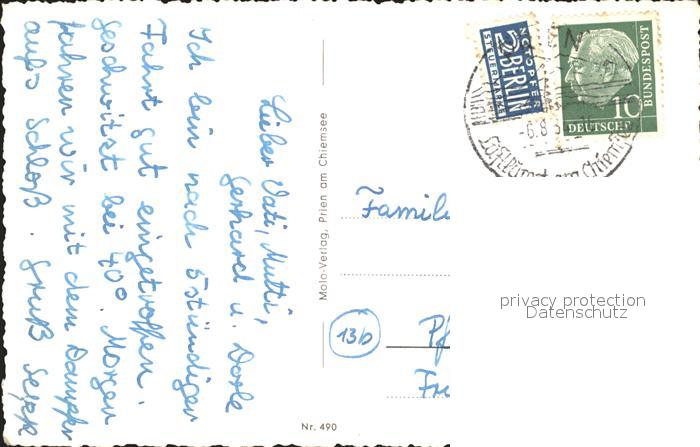 Lieber Vati, Mutti,
Gerhard u. Dorle
Ich bin nach 5stündiger
Fahrt gut eingetroffen.
Geschwitzt bei 40°. Morgen
fahren wir mit dem Dampfer
aufs Schloß. Gruß Sepp
Molo-Verlag, Prien am Chiemsee
NOTOPFER
2 BERLIN
STEUERMARKE
10
DEUTSCHE
BUNDESPOST
-6.8.5
Luftkurort am Chiemsee
Famil
13b
Pf
Fr
privacy protection
Datenschutz
Nr. 490